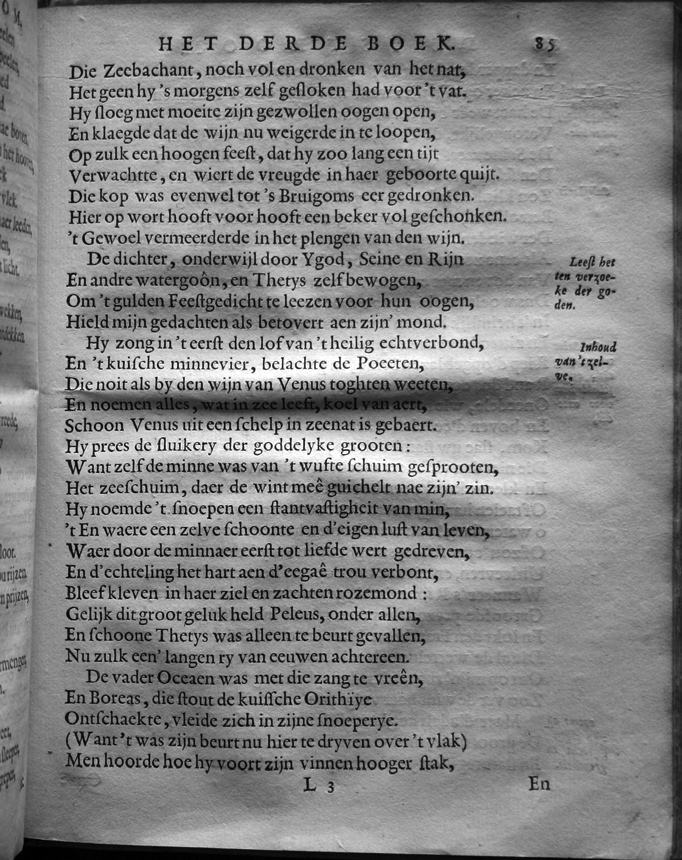 HET DERDE BOEK. 85
Die Zeebachant, noch vol en dronken van het nat,
Het geen hy 's morgens zelf geſloken had voor 't vat.
Hy ſloeg met moeite zijn gezwollen oogen open,
En klaegde dat de wijn nu weigerde in te loopen,
Op zulk een hoogen feeſt, dat hy zoo lang een tijt
Verwachtte, en wiert de vreugde in haer geboorte quijt.
Die kop was evenwel tot 's Bruigoms eer gedronken.
Hier op wort hooft voor hooft een beker vol geſchonken.
't Gewoel vermeerderde in het plengen van den wijn.
De dichter, onderwijl door Ygod, Seine en Rijn
En andre watergoôn, en Thetys zelf bewogen,
Om 't gulden Feeſtgedicht te leezen voor hun oogen,
Hield mijn gedachten als betovert aen zijn' mond.
Leeſt het
ten verzoe-
ke der go-
den.
Hy zong in 't eerſt den lof van 't heilig echtverbond,
En 't kuiſche minnevier, belachte de Poëeten,
Die noit als by den wijn van Venus toghten weeten,
En noemen alles, wat in zee leeft, koel van aert,
Schoon Venus uit een ſchelp in zeenat is gebaert.
Inhoud
van 't zel-
ve.
Hy prees de ſluikery der goddelyke grooten:
Want zelf de minne was van 't wufte ſchuim geſprooten,
Het zeeſchuim, daer de wint meê guichelt nae zijn' zin.
Hy noemde 't ſnoepen een ſtantvaſtigheit van min,
't En waere een zelve ſchoonte en d'eigen luſt van leven,
Waer door de minnaer eerſt tot liefde wert gedreven,
En d'echteling het hart aen d'eegaê trou verbont,
Bleef kleven in haer ziel en zachten rozemond:
Gelijk dit groot geluk held Peleus, onder allen,
En ſchoone Thetys was alleen te beurt gevallen,
Nu zulk een' langen ry van eeuwen achtereen.
De vader Oceaen was met die zang te vreên,
En Boreas, die ſtout de kuiſſche Orithïye
Ontſchaekte, vleide zich in zijne ſnoeperye.
(Want 't was zijn beurt nu hier te dryven over 't vlak)
Men hoorde hoe hy voort zijn vinnen hooger ſtak,
L 3 En